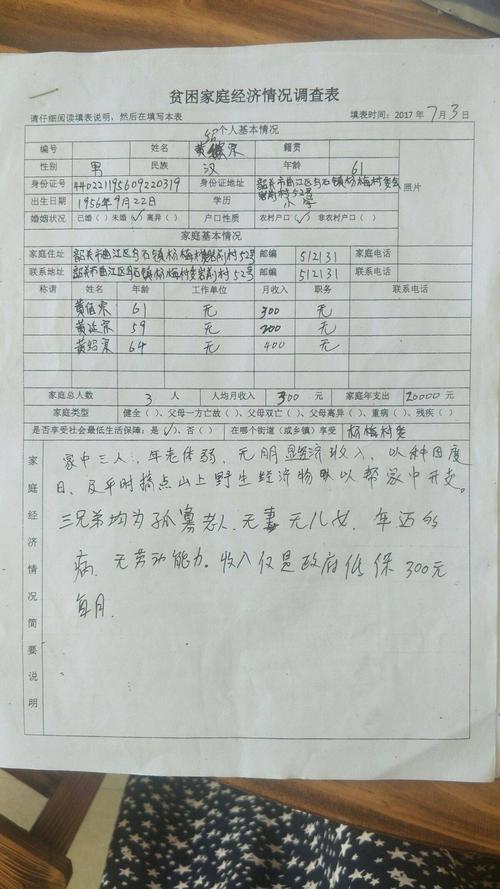 贫困家庭经济情况调查表
请仔细阅读填表说明，然后在填写本表 填表时间：2017年7月3日
个人基本情况
编号 姓名 黄 宗 籍贯
性别 男 民族 汉 年龄 61
身份证号 440221195609220319 身份证地址 韶关市曲江区乌石镇杨梅村委会 村52号 照片
出生日期 1956年9月22日 学历 小学
婚姻状况 已婚（ ）未婚（✓）离异（ ） 户口性质 农村户口（✓） 非农村户口（ ）
家庭基本情况
家庭住址 韶关市曲江区乌石镇杨梅村委 村52号 邮编 512131 家庭电话
联系地址 韶关市曲江区乌石镇杨梅村委 村52号 邮编 512131 家庭电话
称谓 姓名 年龄 工作单位 月收入 职务 联系电话
黄 宗 61 无 300 无
黄 宗 59 无 200 无
黄绍宗 64 无 400 无
家庭总人数 3 人 人均月收入 300 元 家庭年支出 20000元
家庭类型 健全（ ）、父母一方亡故（ ）、父母双亡（ ）、父母离异（ ）、重病（ ）、残疾（ ）
是否享受社会最低生活保障：是（✓）、否（ ） 在哪个街道（或乡镇）享受 杨梅村委
家庭经济情况简要说明
家中三人，年老体弱，无明显经济收入，以种田度
日，及平时摘点山上野生经济物 以帮家中开支。
三兄弟均为孤寡老人，无妻无儿女，年迈
病，无劳动能力。收入仅是政府低保300元
每月.